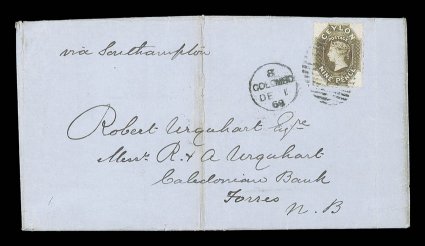 via Southampton
CEYLON
POSTAGE
NINE PENCE
8
COLOMBO
DE 1
69
Robert Urquhart Esqre
Messrs R & A Urquhart
Caledonian Bank
Forres
N. B